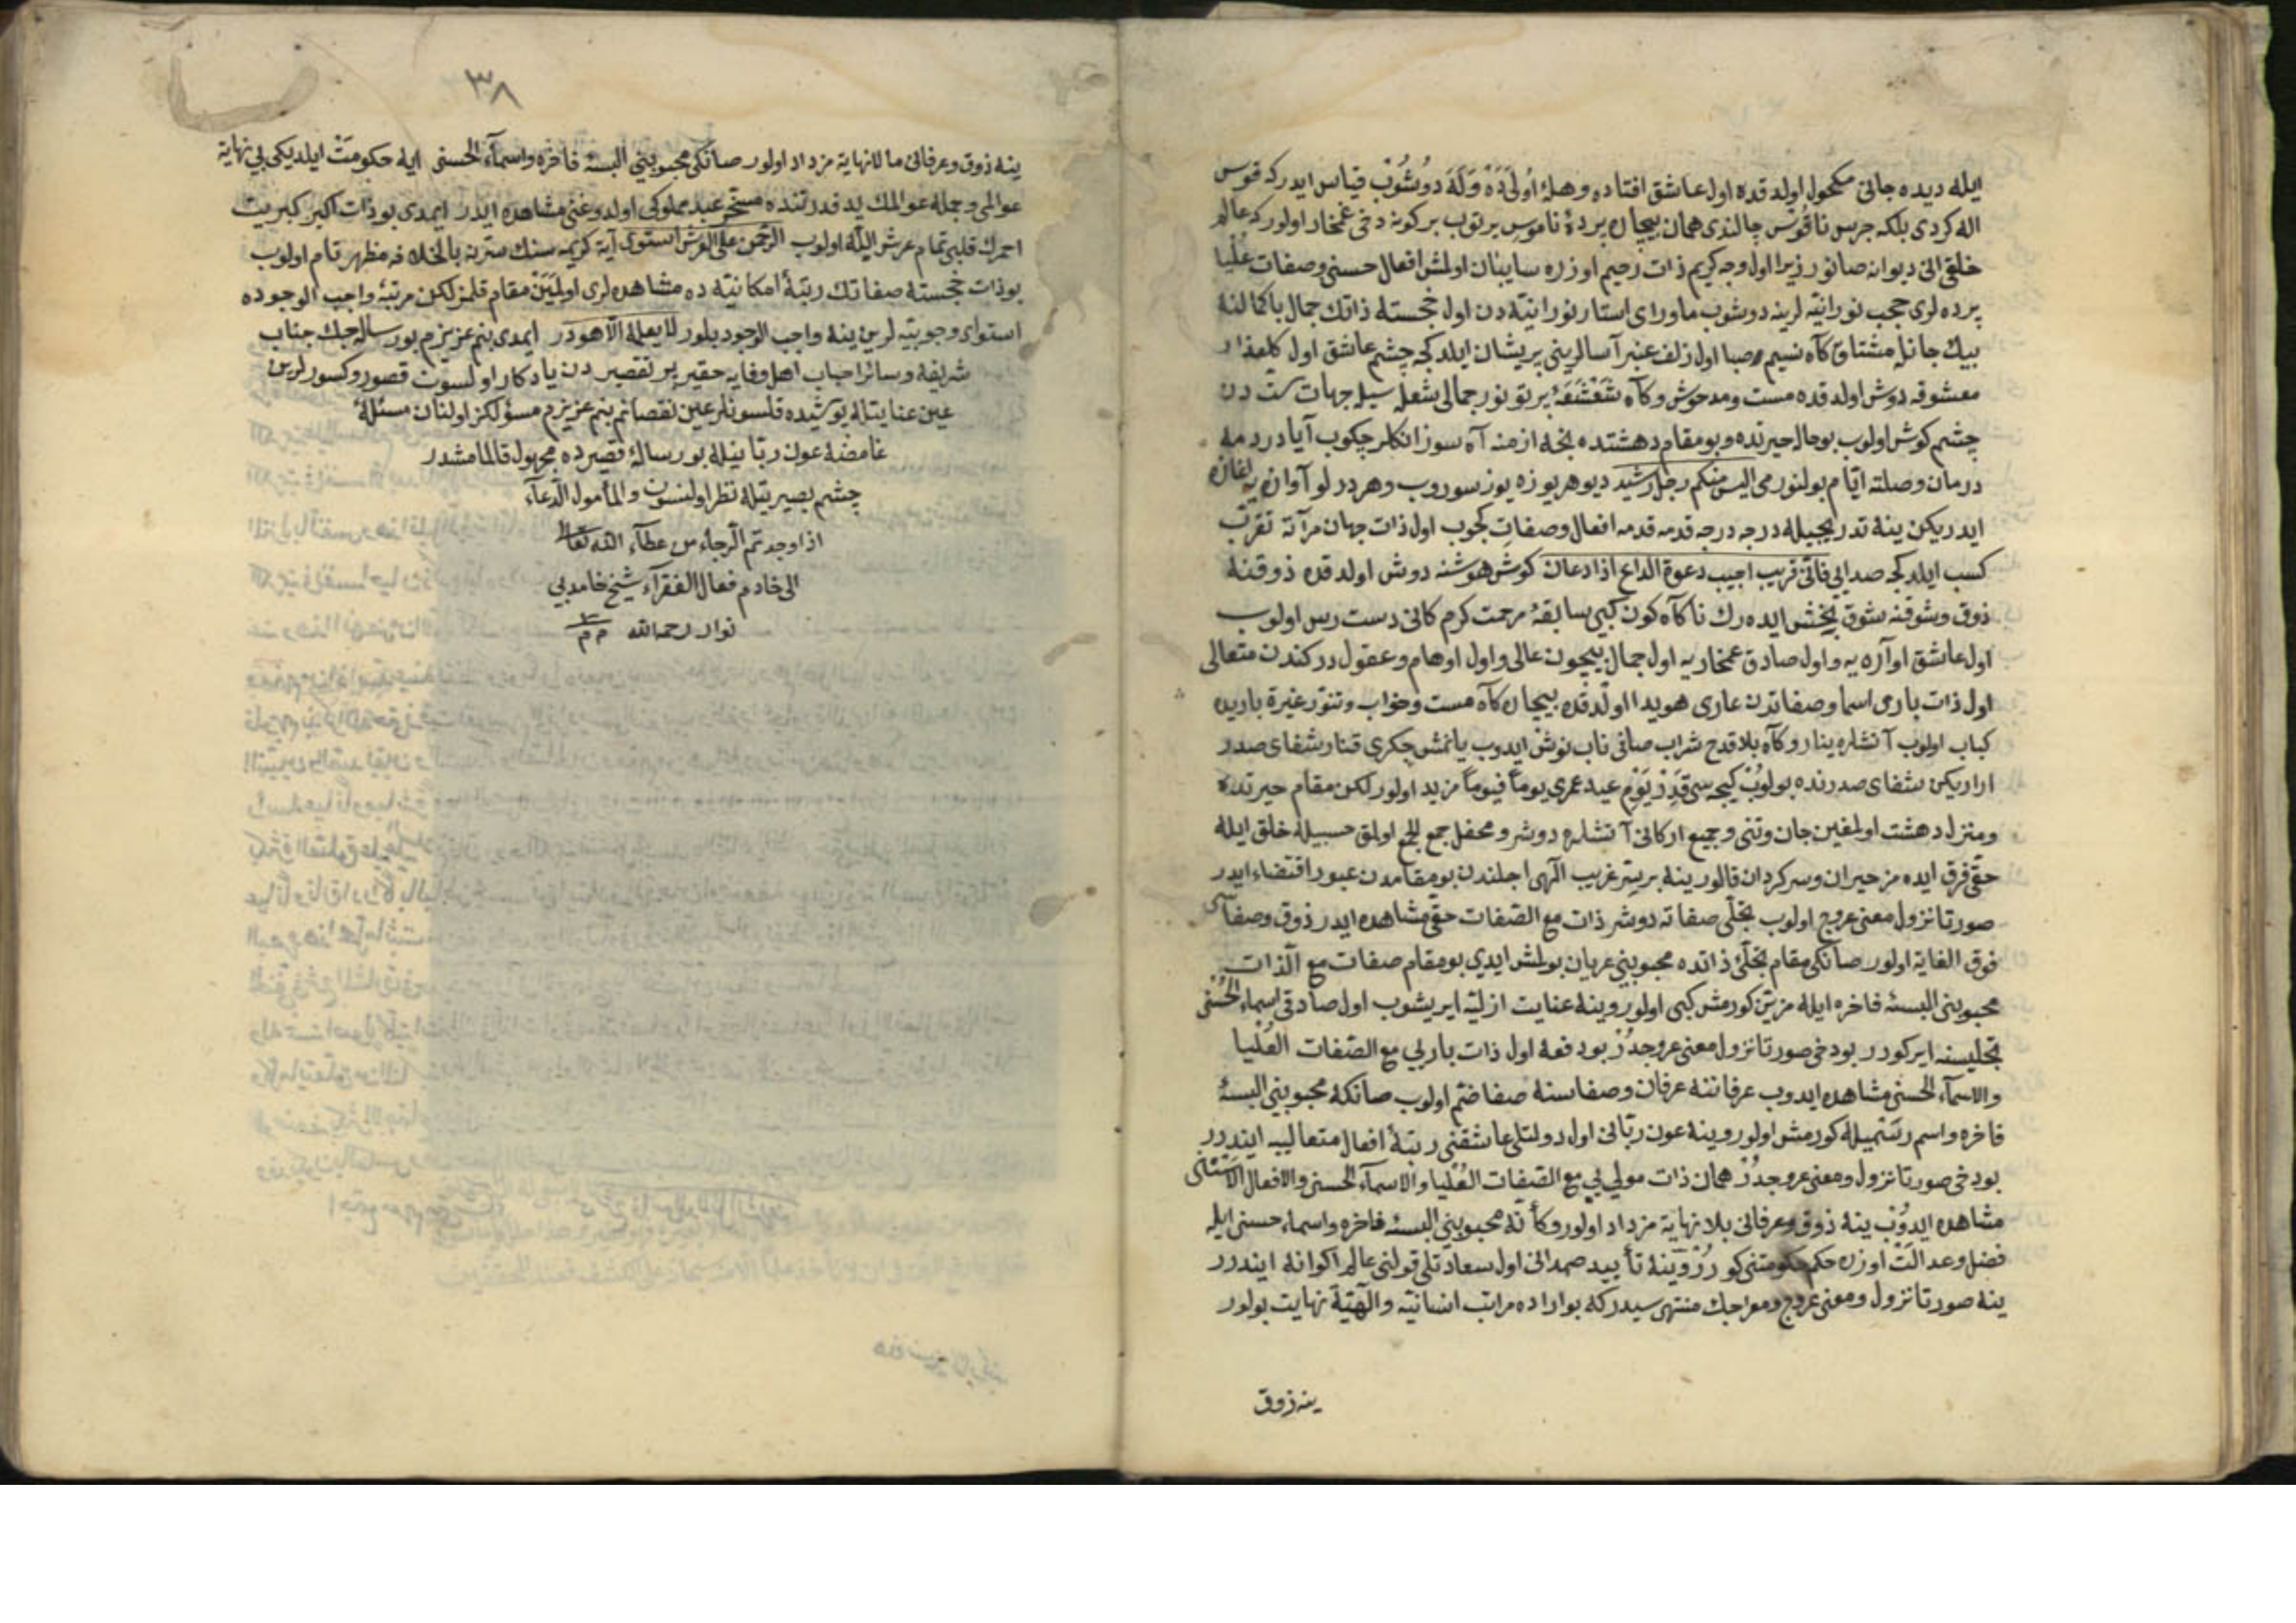 ايله ديده جانى مكحول اولدقده اول عاشق افتاده وهلۀ اُولىَدَه وَلَهَ دوُشُوبْ قياس ايدركه قوس
اله كردى بلكه جرس ناقُوسْ چالندى همان بيچاره پردۀ ناموس يرتوب بركونه دخى غمخار اولوركه عالم
خلقى انى ديوانه صانور زيرا اول وجه كريم ذات رحيم اوزره سايبان اولمش افعال حسنى وصفات عُليا
پرده لرى حجب نورانيّه لرينه دوشوب ماوراى استار نورانيّه دن اول خجسته ذاتك جمال باكمالنه
بيك جانله مشتاق كاه نسيم صبا اول زلف عنبر آسالرينى پريشان ايلدكجه چشم عاشق اول كلعذار
معشوقه دوش اولدقده مست ومدحوش وكاه شَعْشَعَۀ پرتو نور جمالى شعله سيله جهات ستّ دن
چشم كوش اولوب بو حال حيرتده وبو مقام دهشتده نجه ازمنه آه سوزانكلر چكوب آيا دردمه
درمان وصلته ايّام بولنورمى اليس منكم رجل رشيد ديو هر يوزه يوز سوروب وهر درلو آوازه يه اغاز
ايدريكن ينه تدريجيله درجه درجه قدمه قدمه افعال وصفات كچوب اول ذات جهان مرآته تقرّب
كسب ايلدكجه صدايى فانّى قريب اجيب دعوة الداع اذا دعان كوش هوشنه دوش اولدقده ذوقنه
ذوق وشوقنه شوق بخش ايده رك ناكاه كون كبى سابقۀ مرحمت كرم كانى دست رس اولوب
اول عاشق اواره يه واول صادق غمخاريه اول جمال بيچون عالى واول اوهام وعقول دركندن متعالى
اول ذات بارى اسما وصفاتدن عارى هويدا اولدقده بيچاره كاه مست وخراب وتنور غيرة باريده
كباب اولوب آتشلره ينار وكاه بلا قدح شراب صافى ناب نوش ايدوب يانمش جكرى قنار شفاى صدر
اراريكن شفاى صدرنده بولوُبْ كيجه سى قَدِرْ يَوْم عيد عمرى يوماً فيوماً مزيد اولور لكن مقام حيرتده
ومنزل دهشت اولمغين جان وتنى وجميع اركانى آتشلره دوشر ومحفل جمع الجمع اولمق حسبيله خلق ايله
حقّى فرق ايده مز حيران وسركردان قالور ينه بر سِرّ غريب الهى اجلندن بو مقامدن عبور اقتضاء ايدر
صورتا نزول معنى عروج اولوب تجلّى صفاته دوشر ذات مع الصّفات حقّى مشاهده ايدر ذوق وصفاسى
فوق الغاية اولور صانكى مقام تجلّئ ذاتده محبوبنى عريان بولمش ايدى بو مقام صفات مع الذّات
محبوبنى البسۀ فاخره ايله مزيّن كورمش كبى اولور وينه عنايت ازليّه ايريشوب اول صادقى اسماء الحُسْنى
تجليسنه ايركورر بو دخى صورتا نزول معنى عروجدُرْ بو دفعه اول ذات باريى مع الصّفات العُليا
والاسمآء الحسنى مشاهده ايدوب عرفاننه عرفان وصفاسنه صفا ضمّ اولوب صانكه محبوبنى البسۀ
فاخره واسم رسميله كورمش اولور وينه عون ربّانى اول دولتلى عاشقنى رتبۀ افعال متعاليه ايندرر
بو دخى صورتا نزول ومعنى عروجدُرْ همان ذات مولى يى مع الصّفات العُليا والاسمآء الحسنى والافعال الاسنى
مشاهده ايدوُبْ ينه ذوق وعرفانى بلا نهاية مزداد اولور وكأنّه محبوبنى البسۀ فاخره واسماء حسنى ايله
فضل وعدالَتْ اوزره حكم حكومتنى كورُرْ وينه تأييد صمدانى اول سعادتلى قولنى عالم اكوانه ايندرر
ينه صورتا نزول ومعنى عروج ومعراجك منتهى سيدركه بواراده مراتب انسانيّه والٰهيّة نهايت بولور
ينه ذوق
٣٨
ينه ذوق وعرفانى ما لا نهاية مزداد اولور صانكى محبوبنى البسۀ فاخره واسمآء الحسنى ايله حكومَتْ ايلديكى بى نهاية
عوالمى وجمله عوالمك يد قدرتنده مسخّر عبد مملوكى اولدوغنى مشاهده ايدر ايمدى بو ذات اكبر كبريت
احمرك قلبى تمام عرش اللّه اولوب الرّحمن على العرش استوى آية كريمه سنك سرّينه بالخلافه مظهر تام اولوب
بو ذات خجسته صفاتك رتبۀ امكانيّه ده مشاهده لرى اولميَنْ مقام قلمز لكن مرتبۀ واجب الوجوده
استواى وجوبيّه لرين ينه واجب الوجود بلور لا يعلمه الّا هودر ايمدى بنم عزيزم بو رساله جك جناب
شريفه وسائر احباب اهل وفايه حقير پر تقصيردن يادكار اولسون قصور وكسورلرين
عين عنايتله پوشيده قلسونلر عين نقصانم بنم عزيزم مسؤلكز اولنان مسئلۀ
غامضه عون ربّانيله بو رسالۀ قصيرده مجهول قالمامشدر
چشم بصيرتيله نظر اولنسون والمأمول الدّعاء
اذا وجدتم الرّجاء من عطآء اللّه تعالى
الى خادم فعال الفقرآء شيخ حامدى
نوار رحمه اللّه م م